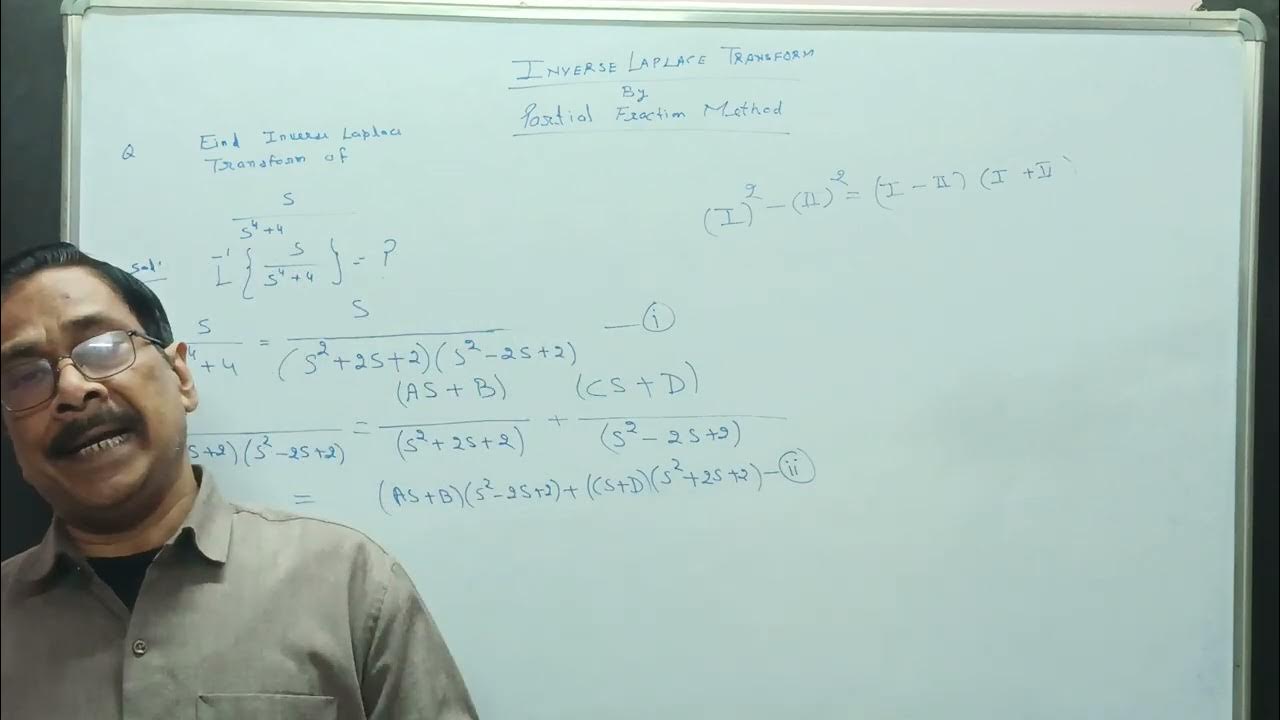 INVERSE LAPLACE TRANSFORM
By
Partial Fraction Method
Q Find Inverse Laplace
Transform of
s
s⁴+4
(I)² - (II)² = (I - II) (I + II)
Sol:
L⁻¹ { s / s⁴+4 } = ?
s / ⁴+4 = s / (s²+2s+2)(s²-2s+2) — (i)
s+2)(s²-2s+2) = (As+B) / (s²+2s+2) + (Cs+D) / (s²-2s+2)
= (As+B)(s²-2s+2)+(Cs+D)(s²+2s+2) — (ii)